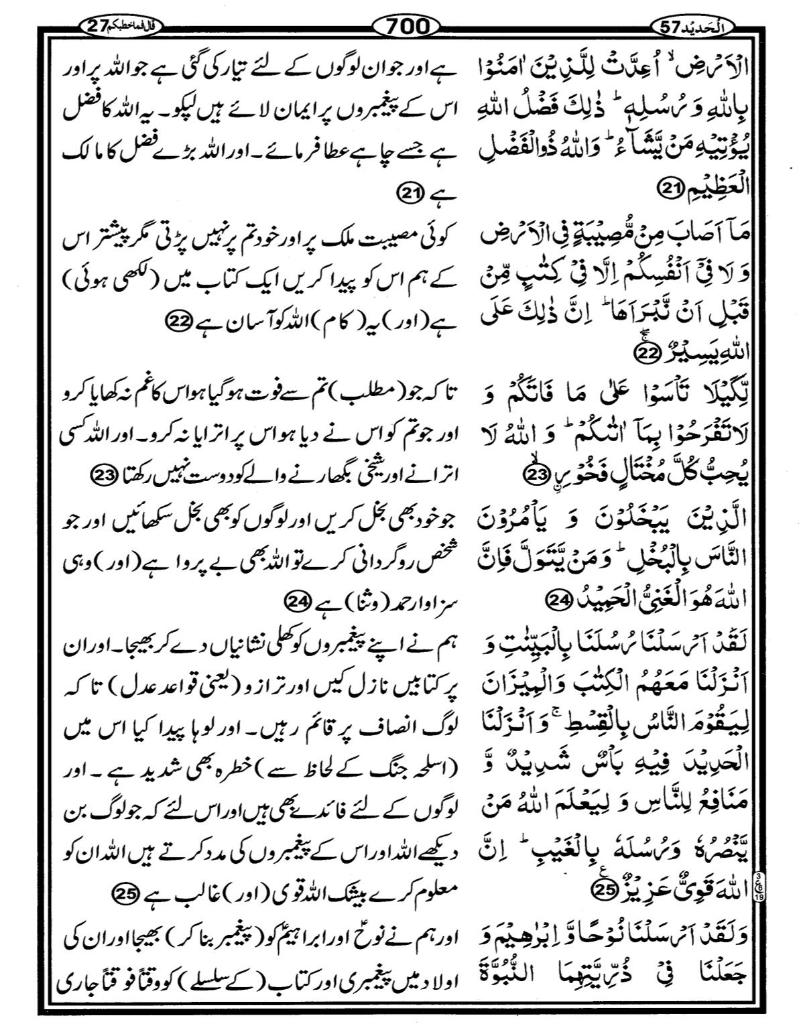 الْحَدِيْد 57
700
قال فما خطبكم 27
الْاَرْضِ ۙ اُعِدَّتْ لِلَّذِيْنَ اٰمَنُوْا
بِاللّٰهِ وَ رُسُلِهٖ ؕ ذٰلِكَ فَضْلُ اللّٰهِ
يُؤْتِيْهِ مَنْ يَّشَآءُ ؕ وَاللّٰهُ ذُوالْفَضْلِ
الْعَظِيْمِ (21)
مَآ اَصَابَ مِنْ مُّصِيْبَةٍ فِي الْاَرْضِ
وَ لَا فِيْٓ اَنْفُسِكُمْ اِلَّا فِيْ كِتٰبٍ مِّنْ
قَبْلِ اَنْ نَّبْرَاَهَا ؕ اِنَّ ذٰلِكَ عَلَى
اللّٰهِ يَسِيْرٌ (22)
لِّكَيْلَا تَاْسَوْا عَلٰى مَا فَاتَكُمْ وَ
لَا تَفْرَحُوْا بِمَآ اٰتٰىكُمْ ؕ وَ اللّٰهُ لَا
يُحِبُّ كُلَّ مُخْتَالٍ فَخُوْرٍ (23)
الَّذِيْنَ يَبْخَلُوْنَ وَ يَاْمُرُوْنَ
النَّاسَ بِالْبُخْلِ ؕ وَ مَنْ يَّتَوَلَّ فَاِنَّ
اللّٰهَ هُوَ الْغَنِيُّ الْحَمِيْدُ (24)
لَقَدْ اَرْسَلْنَا رُسُلَنَا بِالْبَيِّنٰتِ وَ
اَنْزَلْنَا مَعَهُمُ الْكِتٰبَ وَالْمِيْزَانَ
لِيَقُوْمَ النَّاسُ بِالْقِسْطِ ۚ وَ اَنْزَلْنَا
الْحَدِيْدَ فِيْهِ بَاْسٌ شَدِيْدٌ وَّ
مَنَافِعُ لِلنَّاسِ وَ لِيَعْلَمَ اللّٰهُ مَنْ
يَّنْصُرُهٗ وَ رُسُلَهٗ بِالْغَيْبِ ؕ اِنَّ
اللّٰهَ قَوِيٌّ عَزِيْزٌ (25)
وَ لَقَدْ اَرْسَلْنَا نُوْحًا وَّ اِبْرٰهِيْمَ وَ
جَعَلْنَا فِيْ ذُرِّيَّتِهِمَا النُّبُوَّةَ
ہے اور جو ان لوگوں کے لئے تیار کی گئی ہے جو اللہ پر اور
اس کے پیغمبروں پر ایمان لائے ہیں لپکو۔ یہ اللہ کا فضل
ہے جسے چاہے عطا فرمائے۔ اور اللہ بڑے فضل کا مالک
ہے (21)
کوئی مصیبت ملک پر اور خود تم پر نہیں پڑتی مگر پیشتر اس
کے ہم اس کو پیدا کریں ایک کتاب میں (لکھی ہوئی)
ہے (اور) یہ (کام) اللہ کو آسان ہے (22)
تاکہ جو (مطلب) تم سے فوت ہو گیا ہو اس کا غم نہ کھایا کرو
اور جو تم کو اس نے دیا ہو اس پر اترایا نہ کرو۔ اور اللہ کسی
اترانے اور شیخی بگھارنے والے کو دوست نہیں رکھتا (23)
جو خود بھی بخل کریں اور لوگوں کو بھی بخل سکھائیں اور جو
شخص روگردانی کرے تو اللہ بھی بے پروا ہے (اور) وہی
سزاوار حمد (وثنا) ہے (24)
ہم نے اپنے پیغمبروں کو کھلی نشانیاں دے کر بھیجا۔ اور ان
پر کتابیں نازل کیں اور ترازو (یعنی قواعد عدل) تاکہ
لوگ انصاف پر قائم رہیں۔ اور لوہا پیدا کیا اس میں
(اسلحہ جنگ کے لحاظ سے) خطرہ بھی شدید ہے۔ اور
لوگوں کے لئے فائدے بھی ہیں اور اس لئے کہ جو لوگ بن
دیکھے اللہ اور اس کے پیغمبروں کی مدد کرتے ہیں اللہ ان کو
معلوم کرے بیشک اللہ قوی (اور) غالب ہے (25)
اور ہم نے نوحؑ اور ابراہیمؑ کو (پیغمبر بنا کر) بھیجا اور ان کی
اولاد میں پیغمبری اور کتاب (کے سلسلے) کو وقتاً فوقتاً جاری